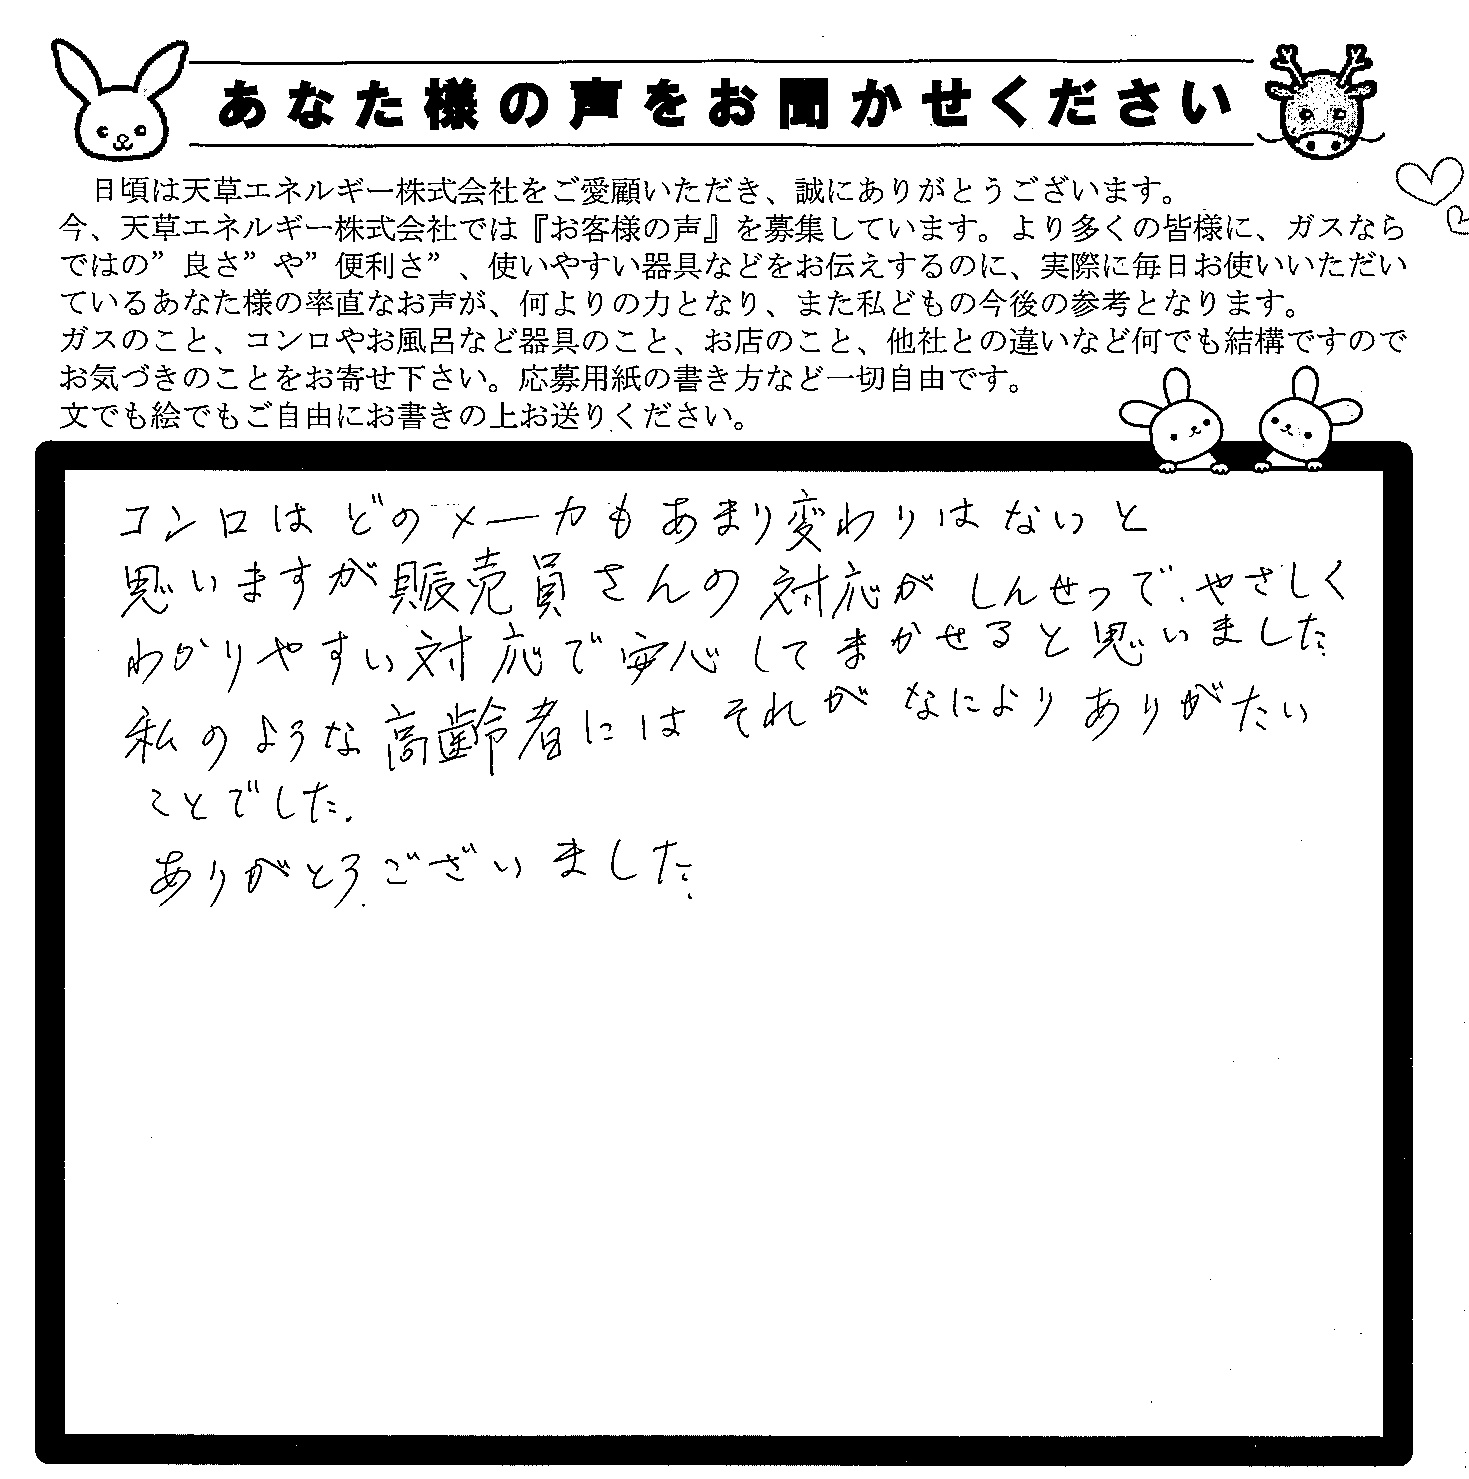 あなた様の声をお聞かせください
日頃は天草エネルギー株式会社をご愛顧いただき、誠にありがとうございます。
今、天草エネルギー株式会社では『お客様の声』を募集しています。より多くの皆様に、ガスなら
ではの”良さ”や”便利さ”、使いやすい器具などをお伝えするのに、実際に毎日お使いいただい
ているあなた様の率直なお声が、何よりの力となり、また私どもの今後の参考となります。
ガスのこと、コンロやお風呂など器具のこと、お店のこと、他社との違いなど何でも結構ですので
お気づきのことをお寄せ下さい。応募用紙の書き方など一切自由です。
文でも絵でもご自由にお書きの上お送りください。
コンロはどのメーカもあまり変わりはないと
思いますが販売員さんの対応がしんせつで、やさしく
わかりやすい対応で安心してまかせると思いました。
私のような高齢者にはそれがなによりありがたい
ことでした。
ありがとう。ございました。